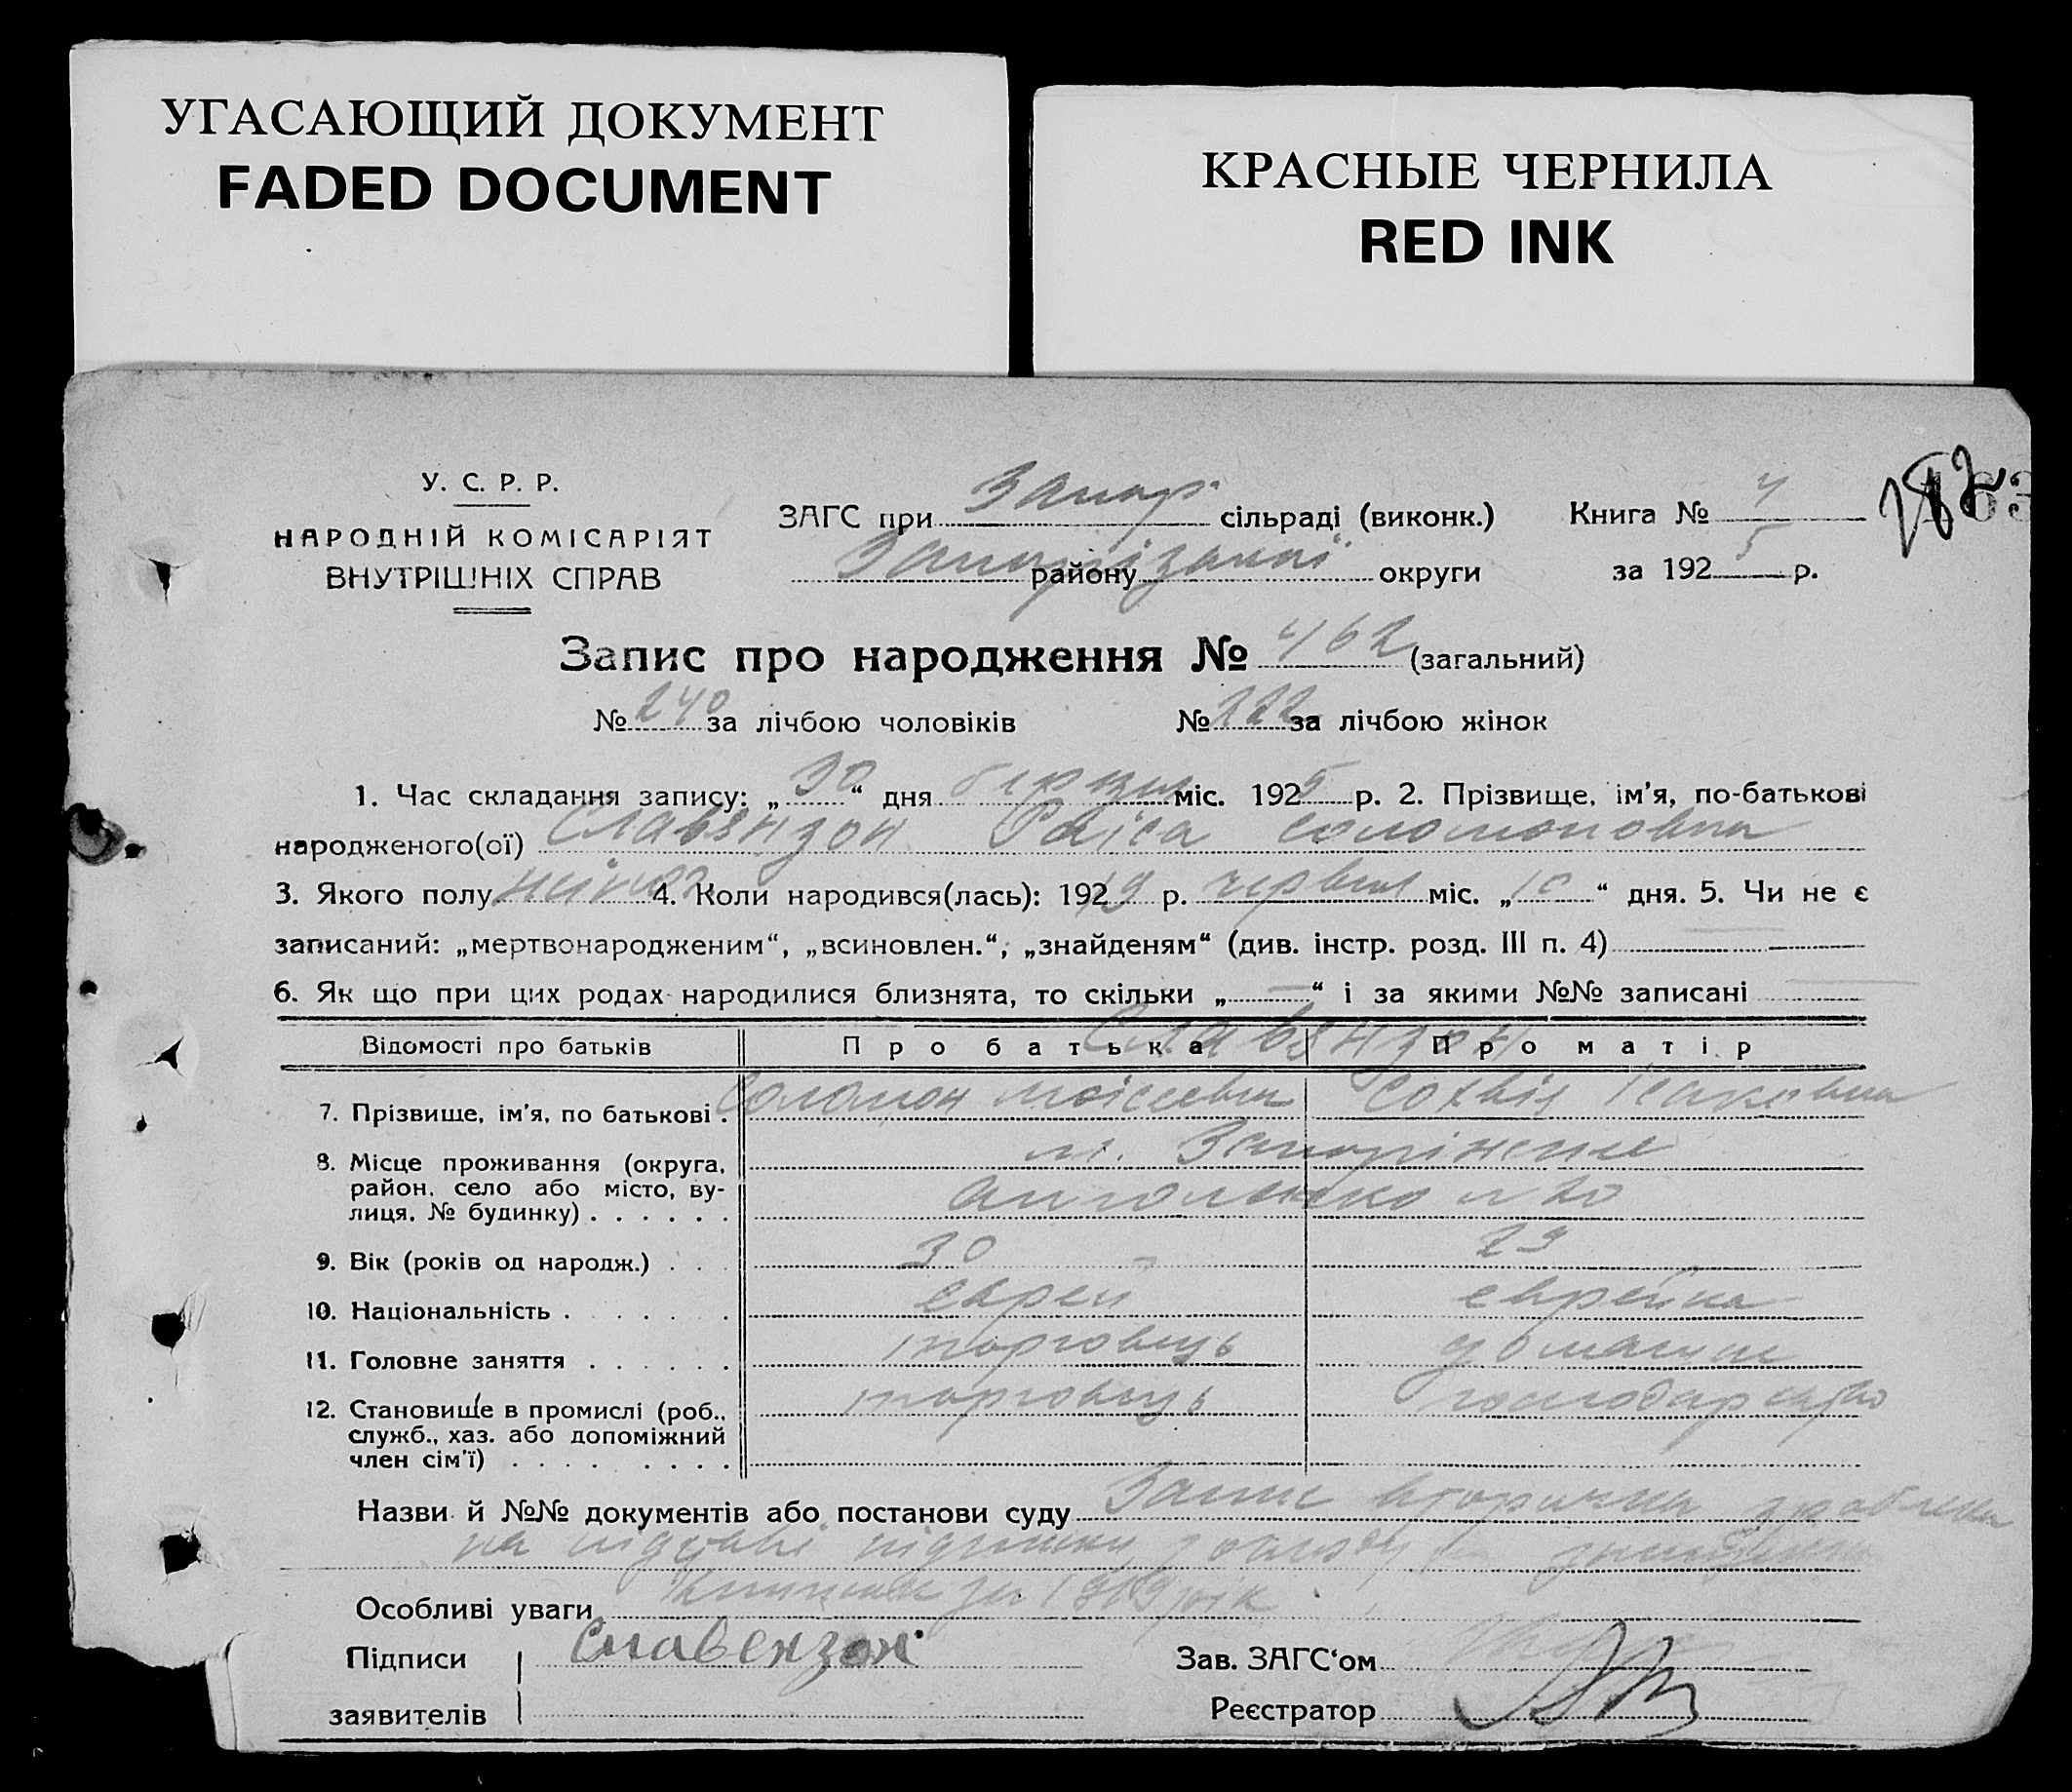 УГАСАЮЩИЙ ДОКУМЕНТ
FADED DOCUMENT
КРАСНЫЕ ЧЕРНИЛА
RED INK
У. С. Р. Р.
НАРОДНІЙ КОМІСАРІЯТ
ВНУТРІШНІХ СПРАВ
ЗАГС при Запор. сільраді (виконк.)
району округи
Книга № 4
за 1925 р.
Запис про народження № 462 (загальний)
№ 240 за лічбою чоловіків № 222 за лічбою жінок
1. Час складання запису: „30“ дня березня міс. 1925 р. 2. Прізвище, ім'я, по-батькові
народженого(ої) Славянзон Раіса Соломоновна
3. Якого полу 4. Коли народився(лась): 19219 р. червня міс. „10“ дня. 5. Чи не є
записаний: „мертвонародженим“, „всиновлен.“, „знайденям“ (див. інстр. розд. III п. 4)
6. Як що при цих родах народилися близнята, то скільки „—“ і за якими №№ записані
Відомості про батьків Про батька Про матір
Славянзон
7. Прізвище, ім'я, по батькові . Соломон Моісеевич Софвія Ісаковна
8. Місце проживання (округа, м. Запоріжжє
район, село або місто, ву-
лиця, № будинку) . . . . . . 20
9. Вік (років од народж.) . . . 30 29
10. Національність . . . . . . еврей еврейка
11. Головне заняття . . . . . . торговець домашнє
12. Становище в промислі (роб., торговець господарство
служб., хаз. або допоміжний
член сім'ї) . . . . . . . . .
Назви й №№ документів або постанови суду Запис вторична зроблена
на підставі
Особливі уваги за 1919 рік
Підписи Славензон Зав. ЗАГС'ом
заявителів Реєстратор